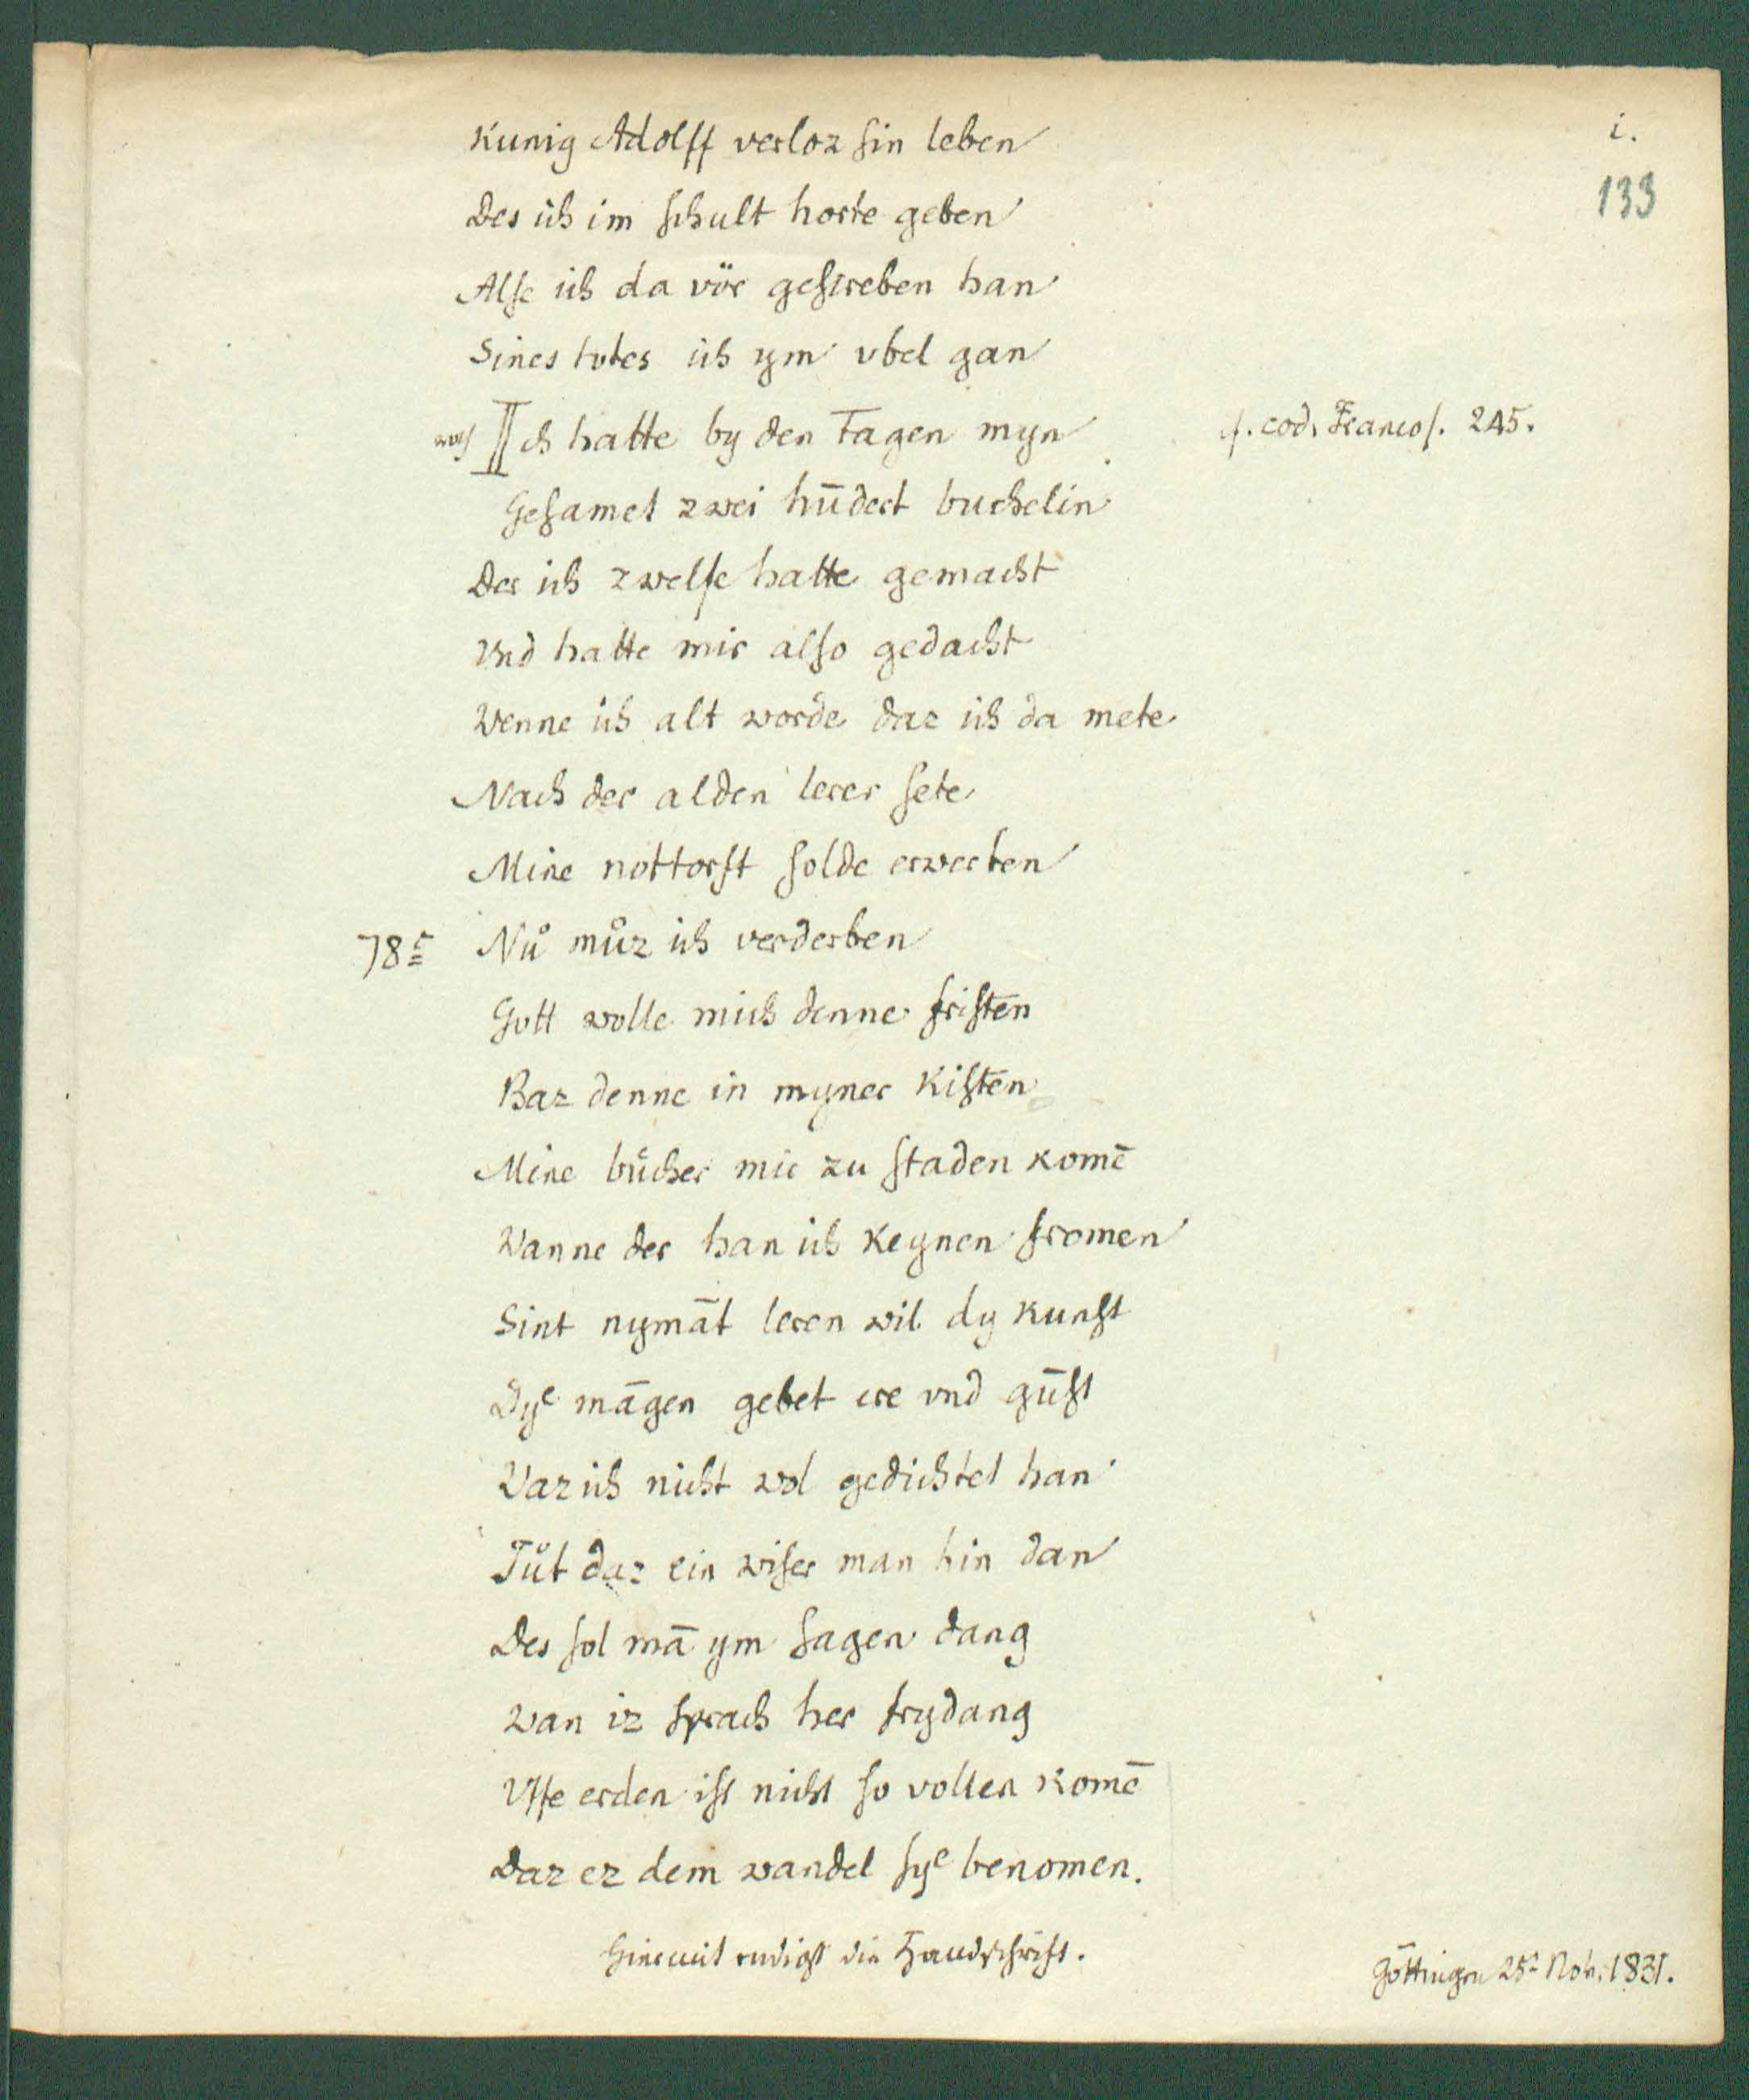 i.
133
Kunig Adolff verloz sin leben
Des ich im schult horte geben
Alse ich da vör geschreben han
Sines todes ich ym vbel gan
Ich hatte by den Tagen myn
cf. cod. Francof. 245.
Gesamet zwei hūdert buchelin
Der ich zwelfe hatte gemacht
Vnd hatte mir also gedacht
Wenne ich alt worde daz ich da mete
Nach der alden lerer sete
Mine nottorft solde erwerben
78r Nů můz ich verderben
Gott wolle mich denne fristen
Baz denne in myner Kisten
Mine bůcher mir zu staden komē
Wanne der han ich keynen fromen
Sint nymāt leren wil dy kunst
Dye māgen gebet ere vnd gūst
Waz ich nicht wol gedichtet han
Tůt daz ein wiser man hin dan
Des sol mā ym sagen dang
Wan iz sprach her frydang
Vffe erden ist nicht so vollen komē
Daz ez dem wandel sye benomen.
Hiermit endigt die Handschrift.
Göttingen 25t Nov. 1831.